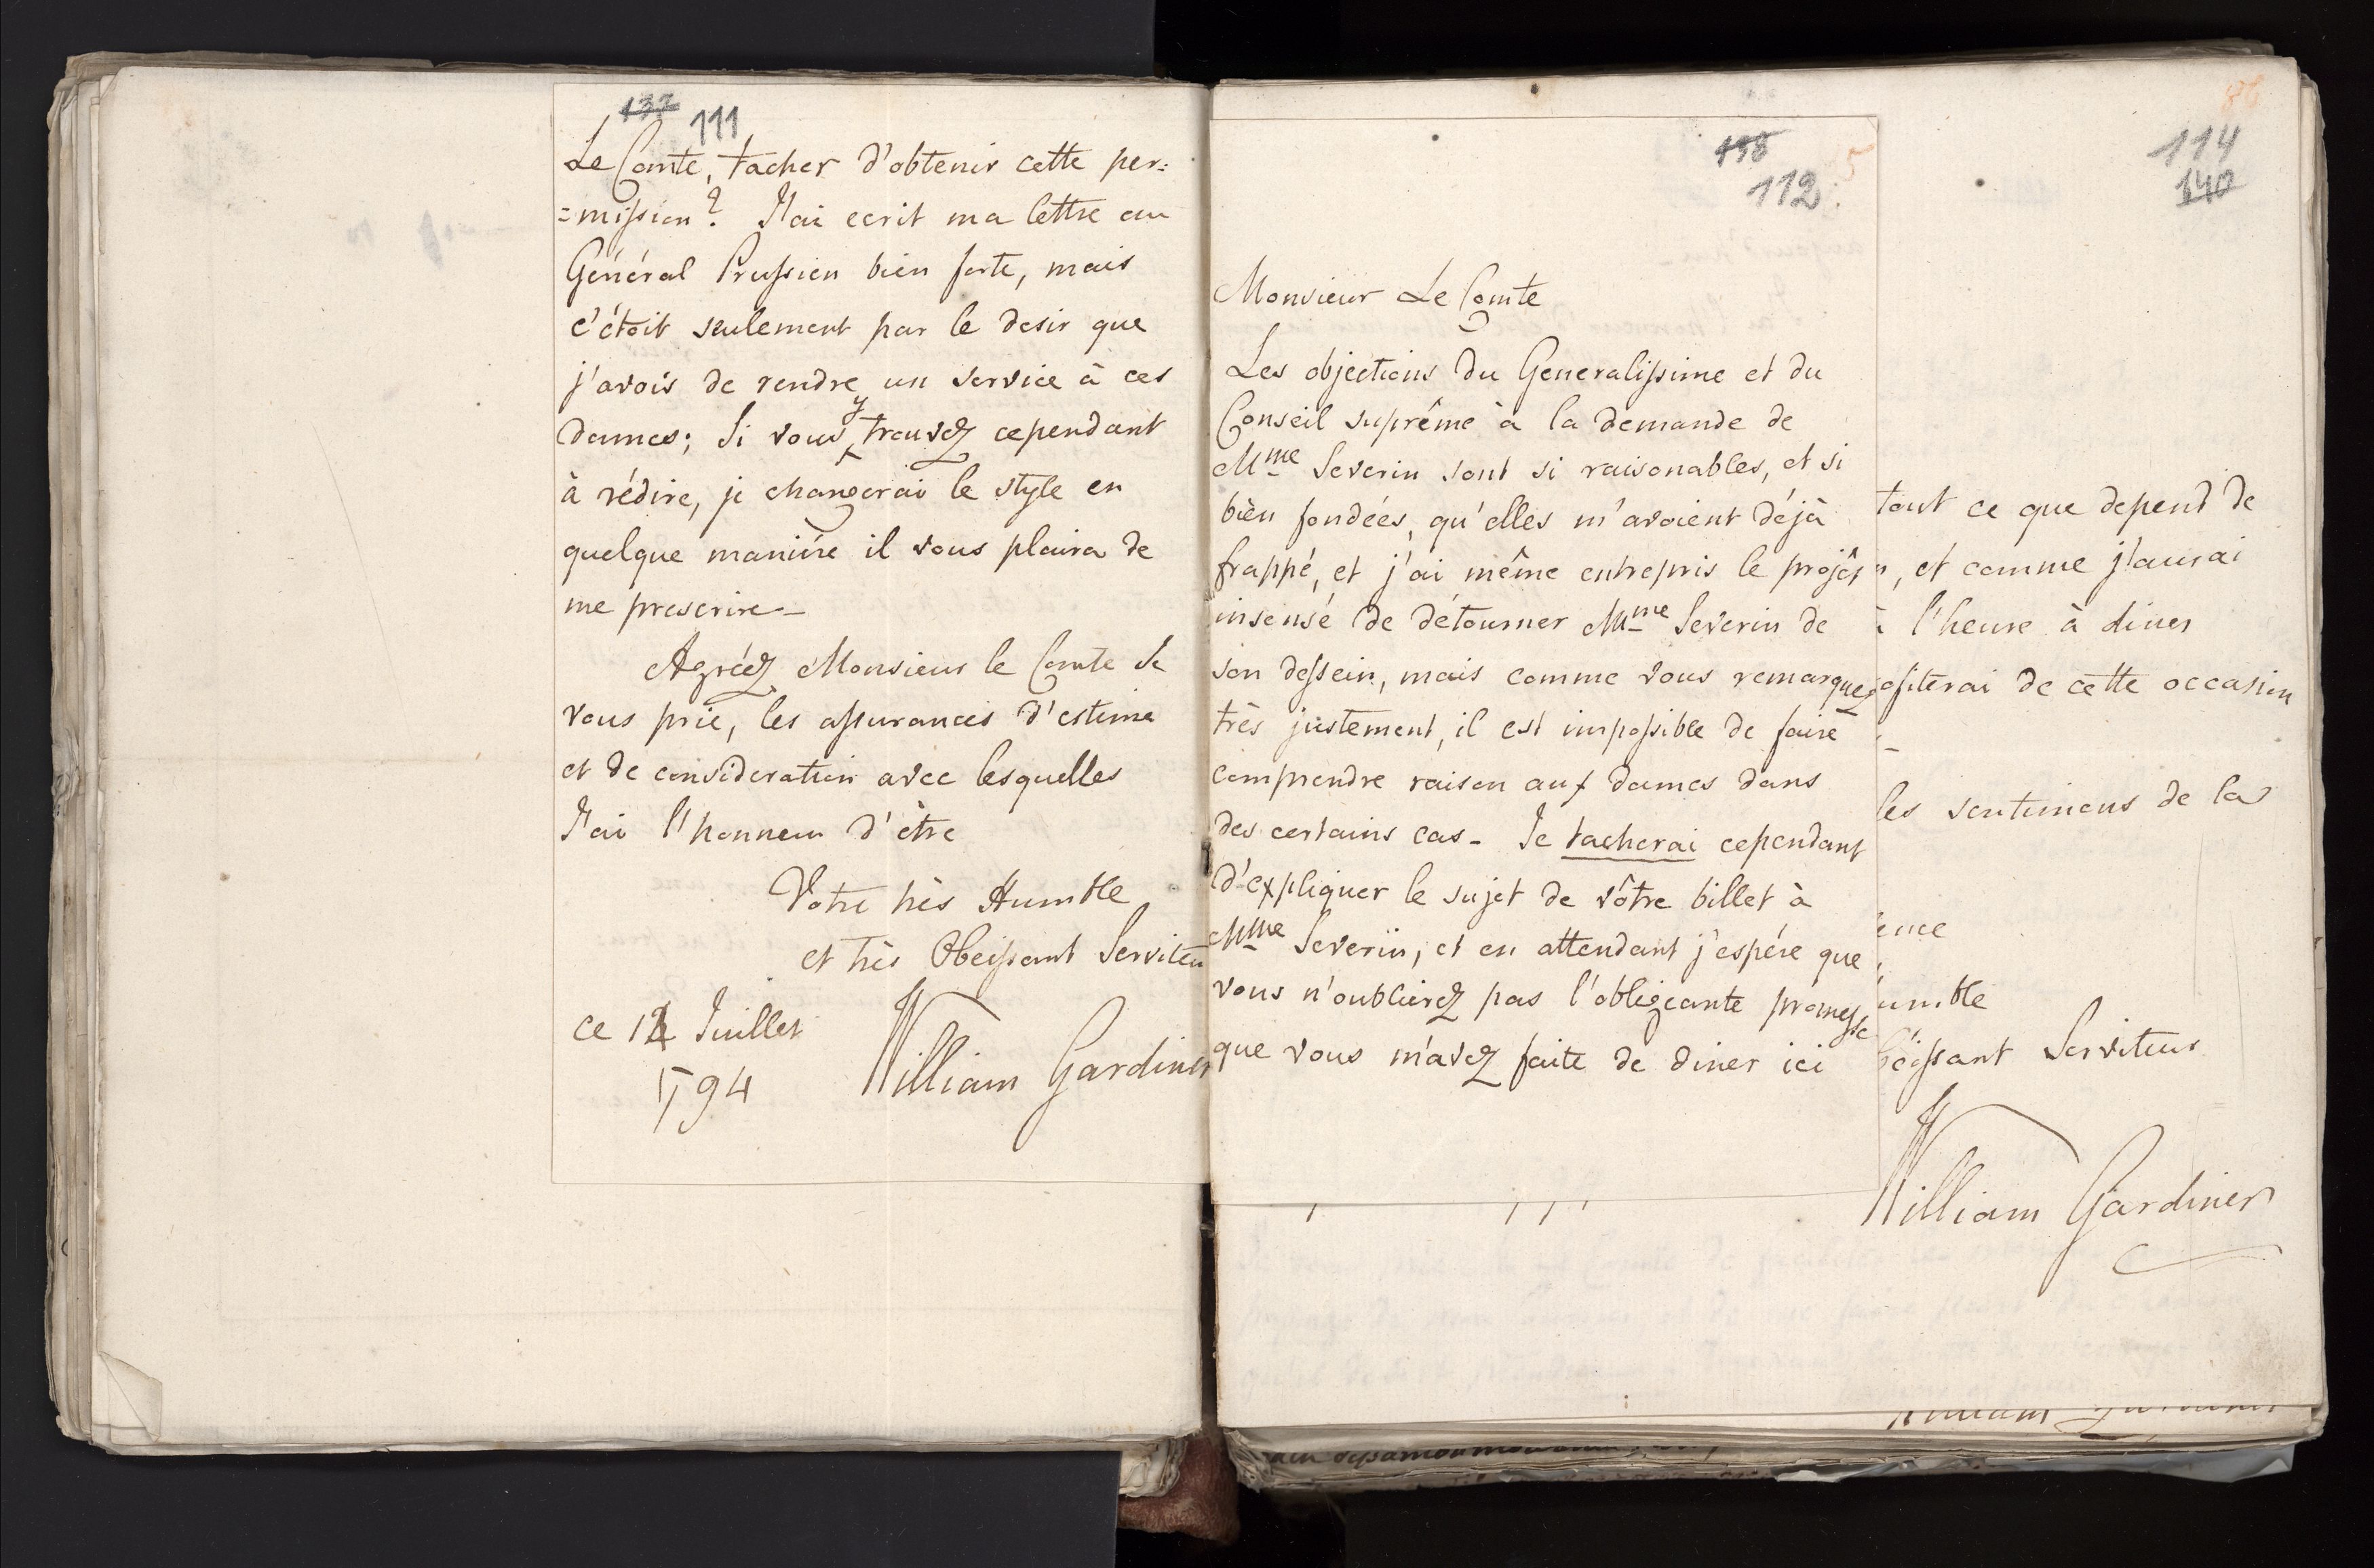 137 111
Le Comte, tacher d'obtenir cette per:
=mission? J'ai ecrit ma lettre au
Général Prussien bien forte, mais
c'étoit seulement par le desir que
j'avois de rendre un service à ces
dames; Si vous y trouvez cependant
à rédire, je changerai le style en
quelque maniére il vous plaira de
me prescrire_
Agréez Monsieur le Comte Je
vous prie, les assurances d'estime
et de consideration avec lesquelles
J'ai l'honneur d'être
Votre très Humble
et très Obeissant Serviteu
ce 12 Juillet
1794 William Gardiner
138
112
Monsieur Le Comte
Les objections du Generalissime et du
Conseil suprême à la demande de
Mme Severin sont si raisonables, et si
bien fondées, qu'elles m'avoient déjà
frappé, et j'ai même entrepris le projêt
insensé de détourner Mme Severin de
son dessein, mais comme vous remarquez
très justement, il est impossible de faire
comprendre raison aux dames dans
des certains cas_ Je tacherai cependant
d'expliquer le sujet de vôtre billet à
Mme Severin, et en attendant j'espére que
vous n'oublierez pas l'obligeante promesse
que vous m'avez faite de diner ici
114
140
tout ce que depend de
, et comme j'aurai
à l'heure à diner
ofiterai de cette occasion
les sentimens de la
ence
umble
béissant Serviteur
William Gardiner